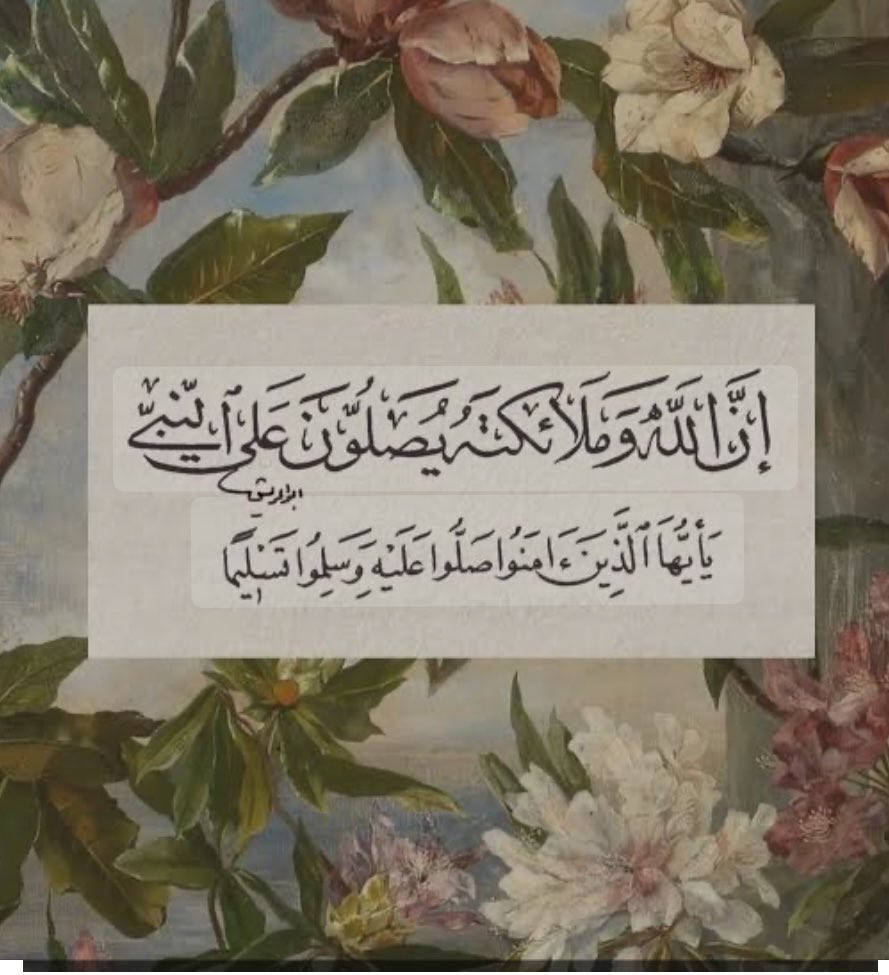 إِنَّ اللَّهَ وَمَلَائِكَتَهُ يُصَلُّونَ عَلَى ٱلنَّبِيِّ
يَٰأَيُّهَا ٱلَّذِينَ ءَامَنُوا صَلُّوا عَلَيْهِ وَسَلِّمُوا تَسْلِيمًا